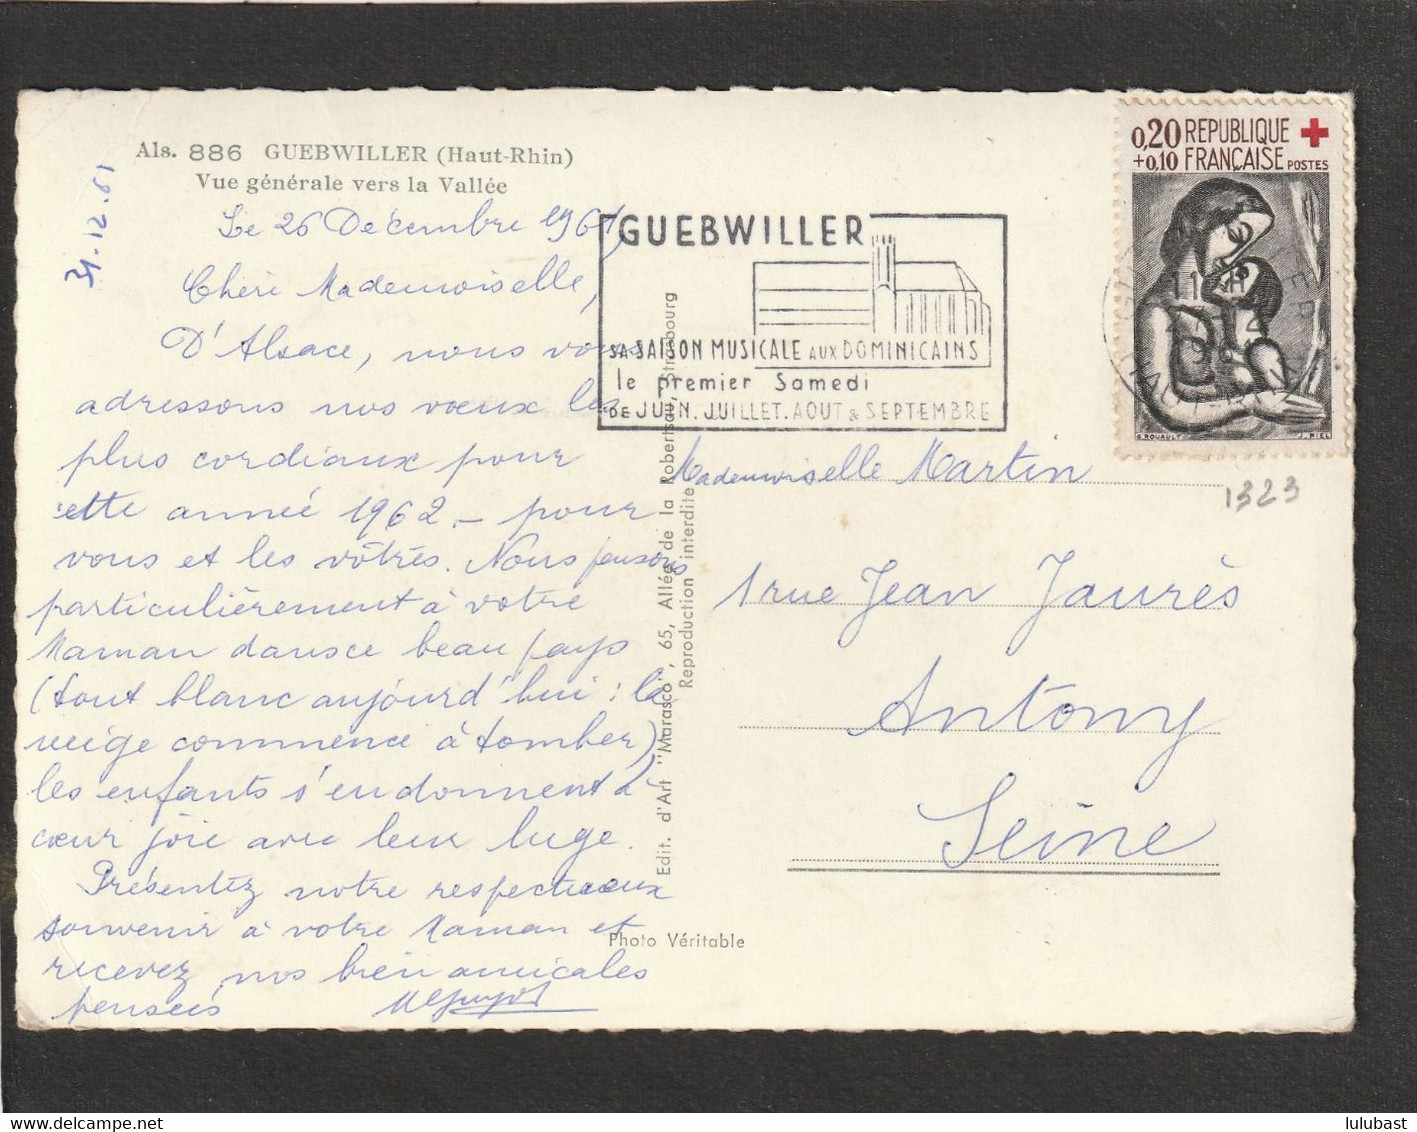 Als. 886 GUEBWILLER (Haut-Rhin)
Vue générale vers la Vallée
31.12.61
Le 26 Décembre 1961
Chère Mademoiselle,
D'Alsace, nous vous
adressons nos vœux les
plus cordiaux pour
cette année 1962 – pour
vous et les vôtres. Nous pensons
particulièrement à votre
Maman dans ce beau pays
(tout blanc aujourd'hui : la
neige commence à tomber)
les enfants s'en donnent à
cœur joie avec leur luge.
Présentez notre respectueux
souvenir à votre Maman et
recevez nos bien amicales
pensées
GUEBWILLER
SA SAISON MUSICALE AUX DOMINICAINS
le premier Samedi
DE JUIN. JUILLET. AOUT & SEPTEMBRE
0,20 REPUBLIQUE
+0,10 FRANÇAISE POSTES
G. ROUAULT J. PIEL
1323
Mademoiselle Martin
1 rue Jean Jaurès
Antony
Seine
Edit. d'Art "Marasco", 65, Allée de la Robertsau, Strasbourg
Reproduction interdite
Photo Véritable
lulubast